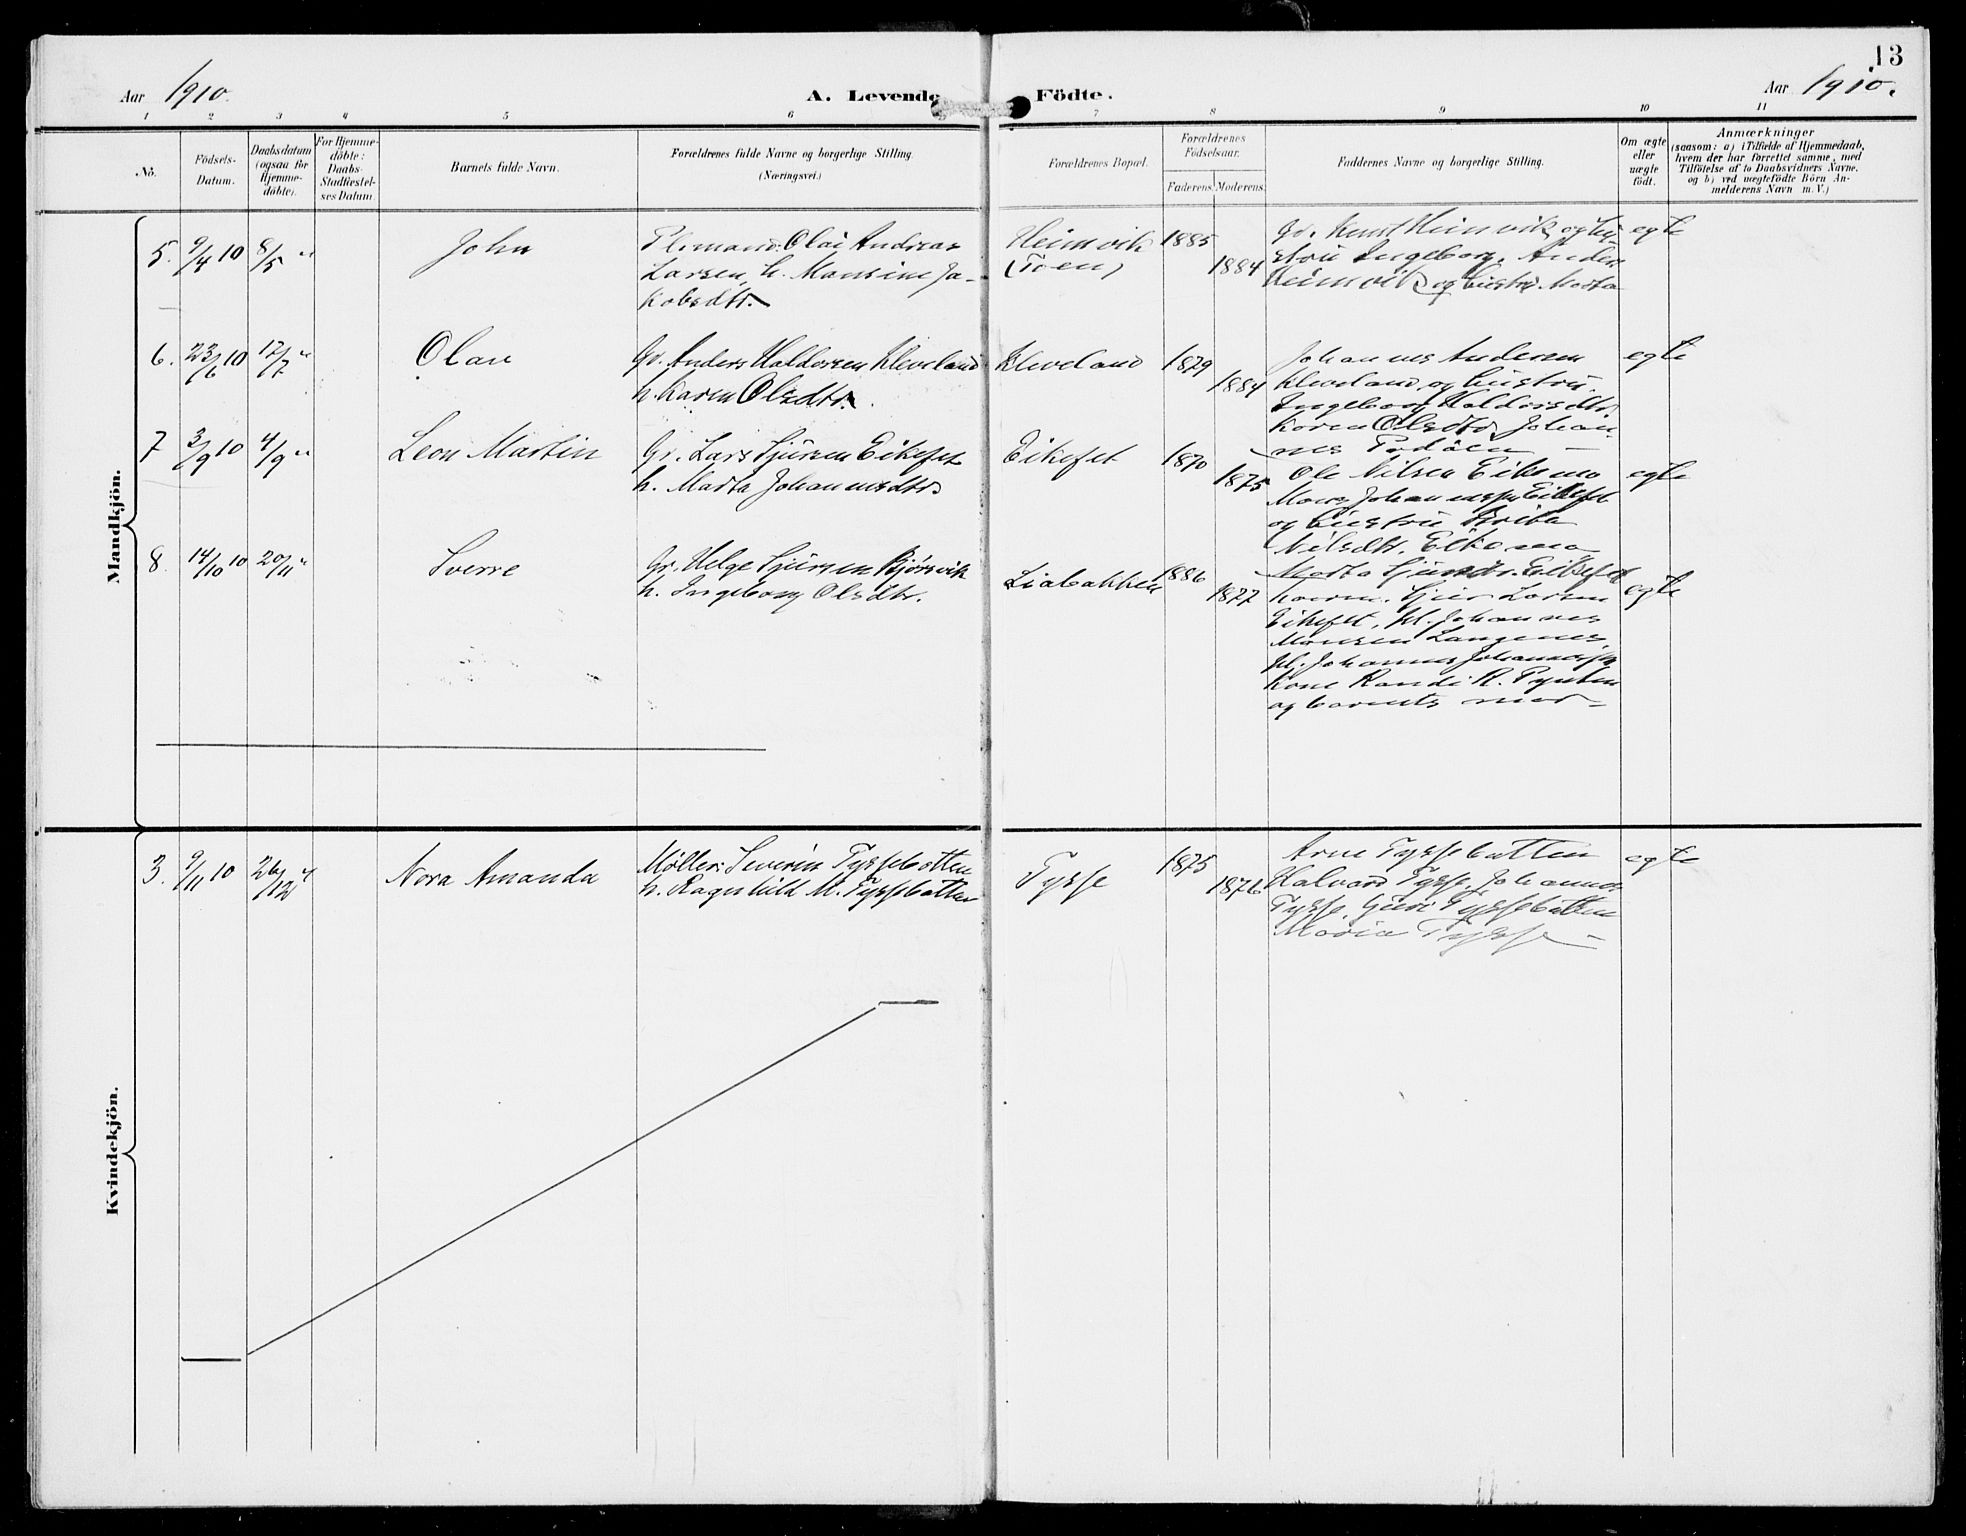 13
Aar 1910.
A. Levende Födte.
Aar 1910.
1 2 3 4 5 6 7 8 9 10 11
No.
Födsels-
Datum.
Daabsdatum
(ogsaa för
Hjemme-
döbte).
For Hjemme-
döbte:
Daabs-
Stadfæstel-
ses Datum.
Barnets fulde Navn.
Forældrenes fulde Navne og borgerlige Stilling.
(Næringsvei.)
Forældrenes Bopæl.
Forældrenes
Födselsaar.
Faderens. Moderens.
Faddernes Navne og borgerlige Stilling.
Om ægte
eller
uægte
födt.
Anmærkninger
(saasom: a) i Tilfælde af Hjemmedaab,
hvem der har forrettet samme, med
Tilföielse af to Daabsvidners Navne.
og b) ved uægtefödte Börn An-
melderens Navn m. V.)
Mandkjön.
5. 9/4 10 8/5 " John
Olai Andreas
Larsen, h. Mansine Ja-
kobsdtr.
Heimvik
(Toen)
1885
1884
Heimvik og hu-
stru Ingeborg, Anders
Heimvik og hustru Marta
egte
6. 23/6 10 17/7 " Olav
Gr. Anders Haldorsen Kleveland
h. Karen Olsdtr.
Kleveland 1879
1884
Johannes Andersen
Kleveland og hustru
Ingeborg Haldorsdtr.
Karen Olsdtr, Johan-
nes
egte
7 3/9 10 4/9 " Leon Martin
Gr. Lars Sjursen Eikefet
h. Marta Johannesdtr.
Eikefet 1870
1875
Ole Nilsen Eikemo
Mons Johannessen Eikefet
og hustru Brita
Nilsdtr. Eikemo
Marta Sjursdtr. Eikefet
egte
8. 14/10 10 20/11 " Sverre
Gr. Helge Sjursen Bjørsvik
h. Ingeborg Olsdtr.
Liabakken 1886
1877
Sjur Larsen
Eikefet, Johannes
Monsen Langenes
Johannes
Kone Randi R.
og barnets mor –
egte
Kvindekjön.
3. 9/11 10 26/12 " Nora Amanda
Møller Severin Tyssebotten
h. Ragnhild M. Tyssebotten
Tysse 1875
1876
Arne Tyssebotten
Halvard Tysse, Johannes
Tysse, Guri Tyssebotten
Maria Tysse –
egte